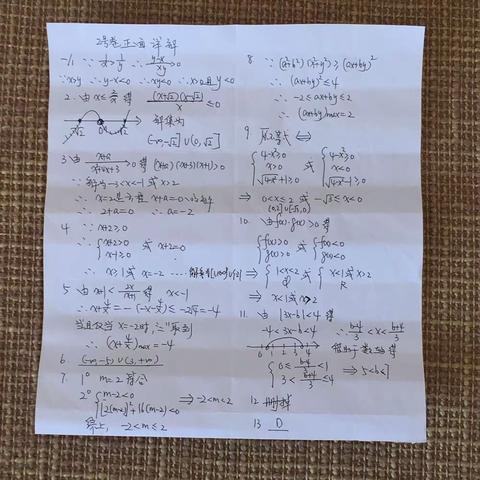 2号卷正面详解
1. ∵ 1/x > 1/y ∴ (y-x)/xy > 0
∵ x>y ∴ y-x<0 ∴ xy<0 ∴ x>0且y<0
2. 由 x ≤ 2/x 得 (x+√2)(x-√2)/x ≤ 0
解集为
(-∞,-√2]∪(0,√2]
3. 由 (x+a)/(x²+4x+3) > 0 得 (x+a)(x+3)(x+1)>0
∵ 解为 -3<x<-1 或 x>2
∴ x=2是方程 x+a=0 的解
∴ 2+a=0 ∴ a=-2
4. ∵ x+2≥0
∴ { x+2>0 或 x+2=0
x-1≥0
∴ x≥1 或 x=-2
5. ∴ x<-1
∴ x+4/x = -(-x-4/x) ≤ -2√4 = -4
当且仅当 x=-2时,"="取到
∴ (x+4/x)max = -4
6. (-∞,-5)∪(3,+∞)
7. 1° m=2 符合
2° { m-2<0
[2(m-2)]²+16(m-2)<0 ⇒ -2<m<2
综上, -2<m≤2
8 ∵ (a²+b²)(x²+y²) ≥ (ax+by)²
∴ (ax+by)² ≤ 4
∴ -2 ≤ ax+by ≤ 2
∴ (ax+by)max=2
9. 原不等式 ⇔
{ 4-x²≥0 或 { 4-x²≥0
x>0 x<0
√(4-x²)+1≥0 √(4-x²)-1≥0
⇒ 0<x≤2 或 -√3≤x<0
(0,2]∪[-√3,0)
10. 由 f(x)·g(x)>0 得
{ f(x)>0 或 { f(x)<0
g(x)>0 g(x)<0
⇒ { 1<x<2 或 { x<1或x>2
∅ R
⇒ x<1或x>2
11. 由 |3x-b|<4 得
-4<3x-b<4 ∴ (b-4)/3 < x < (b+4)/3
0 1 2 3 4 借助于数轴得
{ 0 ≤ (b-4)/3 < 1
3 < (b+4)/3 ≤ 4 ⇒ 5<b<
12
13 D